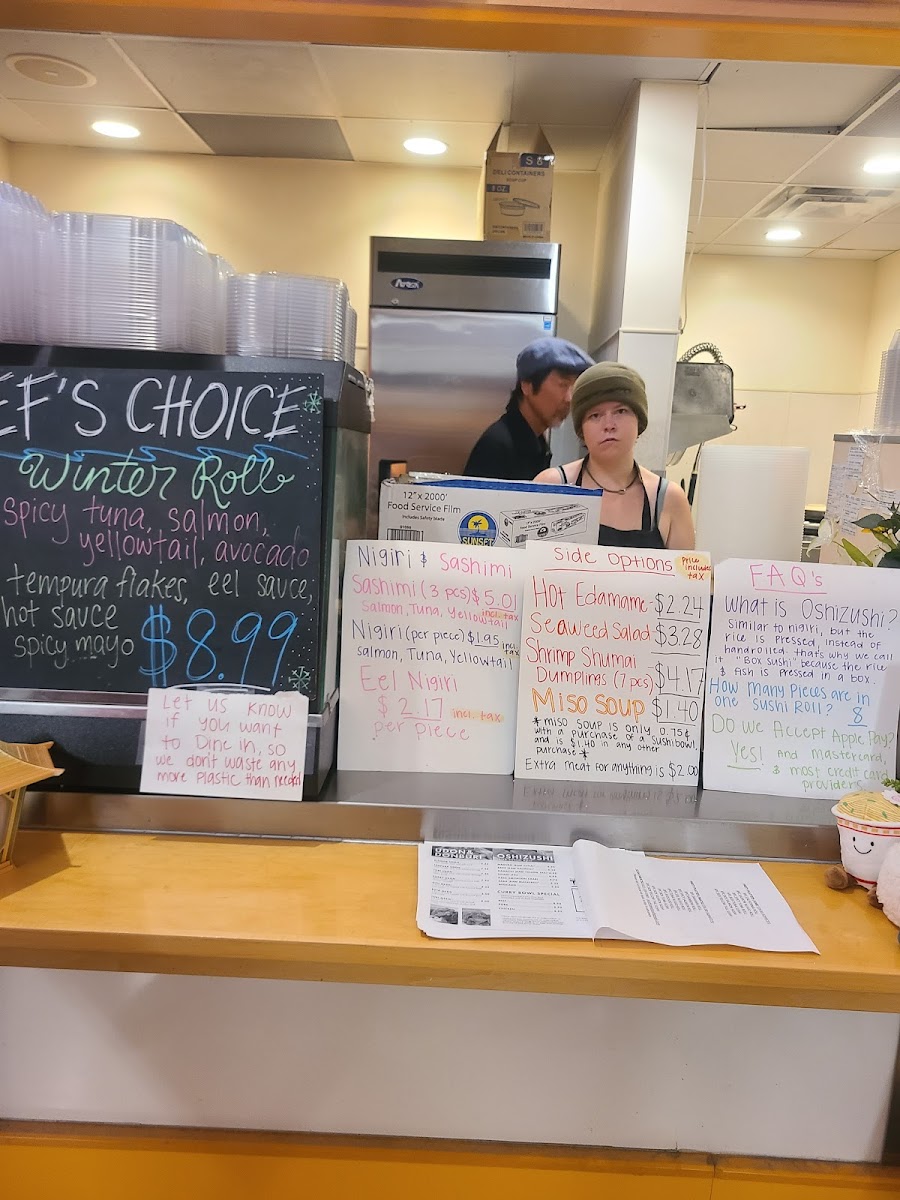 S 8
DELI CONTAINERS
SOUP CUP
8 OZ
Arctic
12" x 2000'
Food Service Film
Includes Safety Blade
SUNSET
EF'S CHOICE
Winter Roll
spicy tuna, salmon,
yellowtail, avocado
tempura flakes, eel sauce,
hot sauce
spicy mayo
$8.99
Let us know
if you want
to Dine in, so
we don't waste any
more plastic than needed
Nigiri & Sashimi
Sashimi (3 pcs) $5.01
incl. tax
salmon, Tuna, Yellowtail
Nigiri (per piece) $1.95 incl. tax
salmon, Tuna, Yellowtail
Eel Nigiri
$2.17 incl. tax
per piece
Side Options
Price includes tax
Hot Edamame - $2.24
Seaweed Salad - $3.28
Shrimp Shumai
Dumplings (7 pcs) $4.17
Miso Soup $1.40
* miso soup is only 0.75¢
with a purchase of a sushi bowl,
and is $1.40 in any other
purchase *
Extra meat for anything is $2.00
FAQ's
What is Oshizushi?
similar to nigiri, but the
rice is pressed, instead of
handrolled. that's why we call
it "Box sushi" because the rice
& fish is pressed in a box.
How many pieces are in
one sushi Roll? 8
Do we Accept Apple Pay?
Yes! And mastercard,
& most credit card
providers
UDON &
DONBURI
OSHIZUSHI
CURRY BOWL SPECIAL